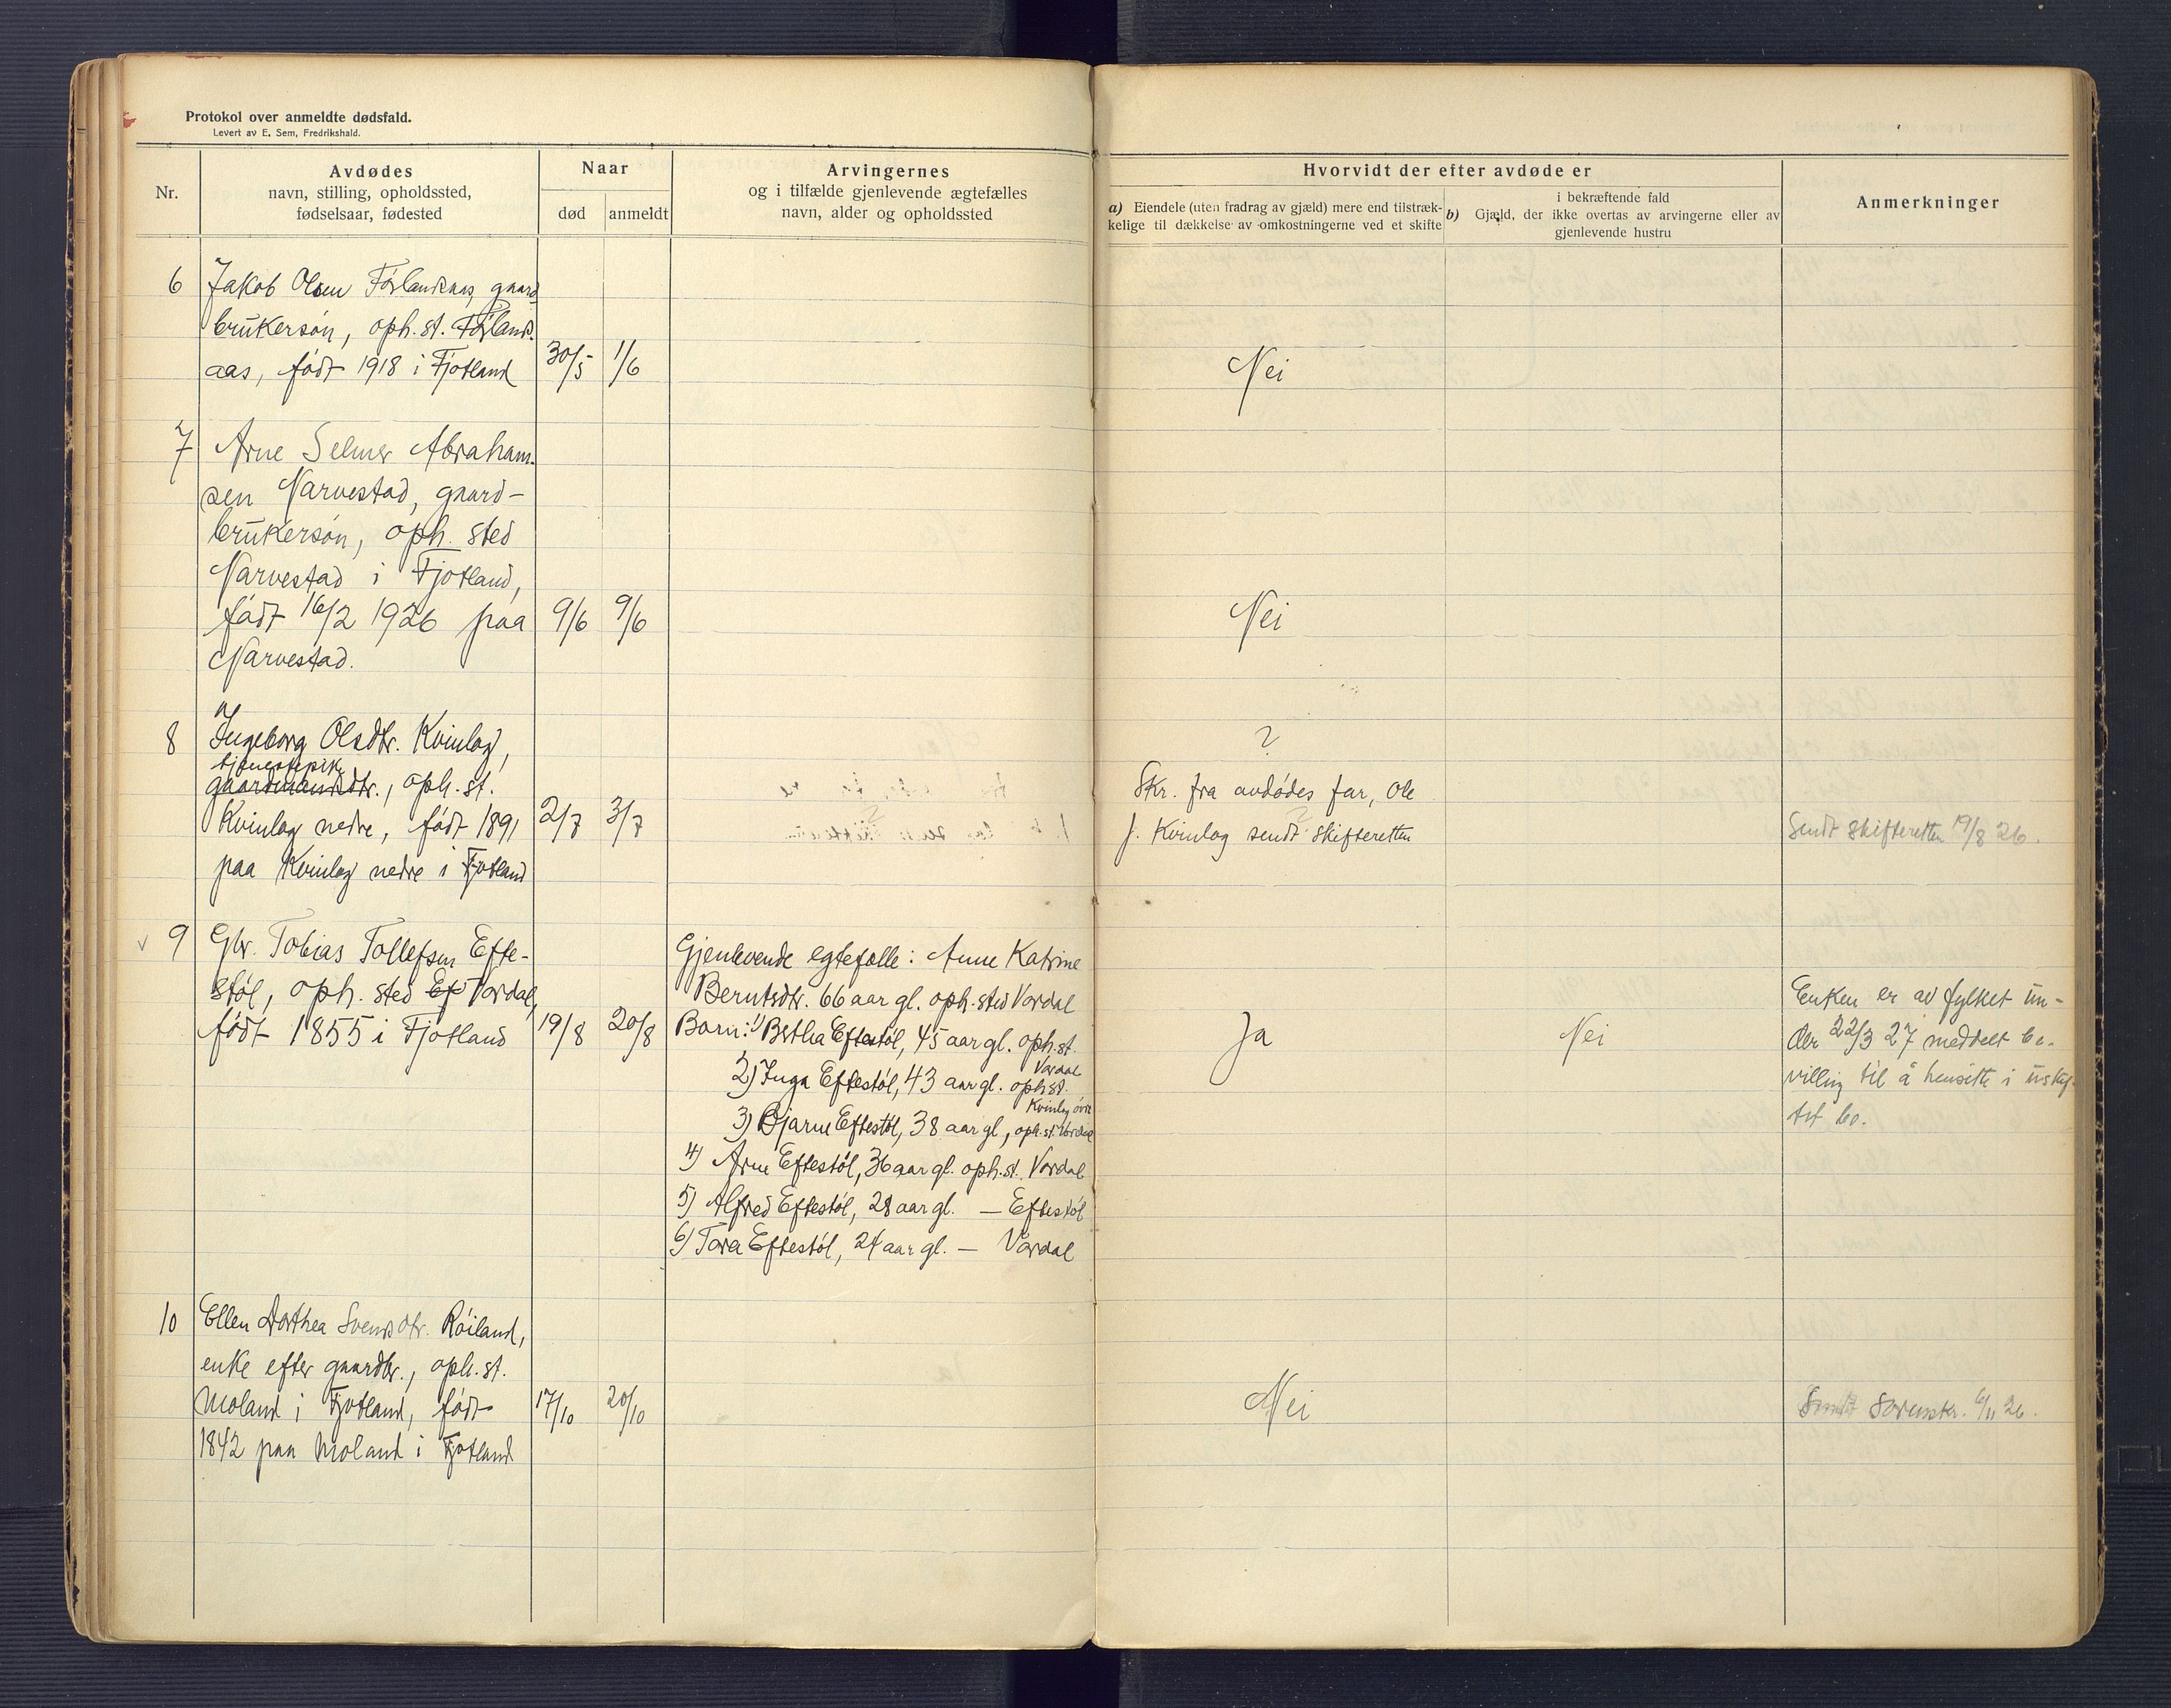 Protokol over anmeldte dødsfald.
Levert av E. Sem, Fredrikshald.
Nr.
Avdødes
navn, stilling, opholdssted,
fødselsaar, fødested
Naar
død
anmeldt
Arvingernes
og i tilfælde gjenlevende ægtefælles
navn, alder og opholdssted
Hvorvidt der efter avdøde er
a) Eiendele (uten fradrag av gjæld) mere end tilstræk-
kelige til dækkelse av omkostningerne ved et skifte
i bekræftende fald
b) Gjæld, der ikke overtas av arvingerne eller av
gjenlevende hustru
Anmerkninger
6
Jakob Olsen Førlandsaas, gaard
brukersøn, oph.st. Førlands-
aas, født 1918 i Fjotland
30/5
1/6
Nei
7
Arne Selmer Abraham-
sen Narvestad, gaard-
brukersøn, oph. sted
Narvestad i Fjotland,
født 16/2 1926 paa
Narvestad.
9/6
9/6
Nei
8
Ingeborg Olsdtr. Kvinlog,
tjenestepik
gaardmandsdtr., oph. st.
Kvinlog nedre, født 1891
paa Kvinlog nedre i Fjotland
2/7
3/7
?
Skr. fra avdødes far, Ole
J. Kvinlog sendt skifteretten
Sendt skifteretten 19/8 26.
9
Gbr. Tobias Tollefsen Efte-
støl, oph. sted Ef Vordal,
født 1855 i Fjotland
19/8
20/8
Gjenlevende egtefælle: Anne Katrine
Berntsdtr. 66 aar gl. oph. sted Vordal
Barn: 1) Bertha Eftestøl, 45 aar gl. oph.st.
Vordal
2) Inga Eftestøl, 43 aar gl. oph.st.
Kvinlog øvre
3) Bjarne Eftestøl, 38 aar gl, oph.st. Vordal
4) Arne Eftestøl, 36 aar gl. oph.st. Vordal
5) Alfred Eftestøl, 28 aar gl. — Eftestøl
6) Tora Eftestøl, 24 aar gl. — Vordal
Ja
Nei
Enken er av fylket un-
der 22/3 27 meddelt be-
villing til å hensitte i uskif-
tet bo.
10
Ellen Dorthea Svendsdtr. Røiland,
enke efter gaardbr., oph. st.
Moland i Fjotland, født
1842 paa Moland i Fjotland
17/10
20/10
Nei
Sendt Sorenskr. 6/11 26.